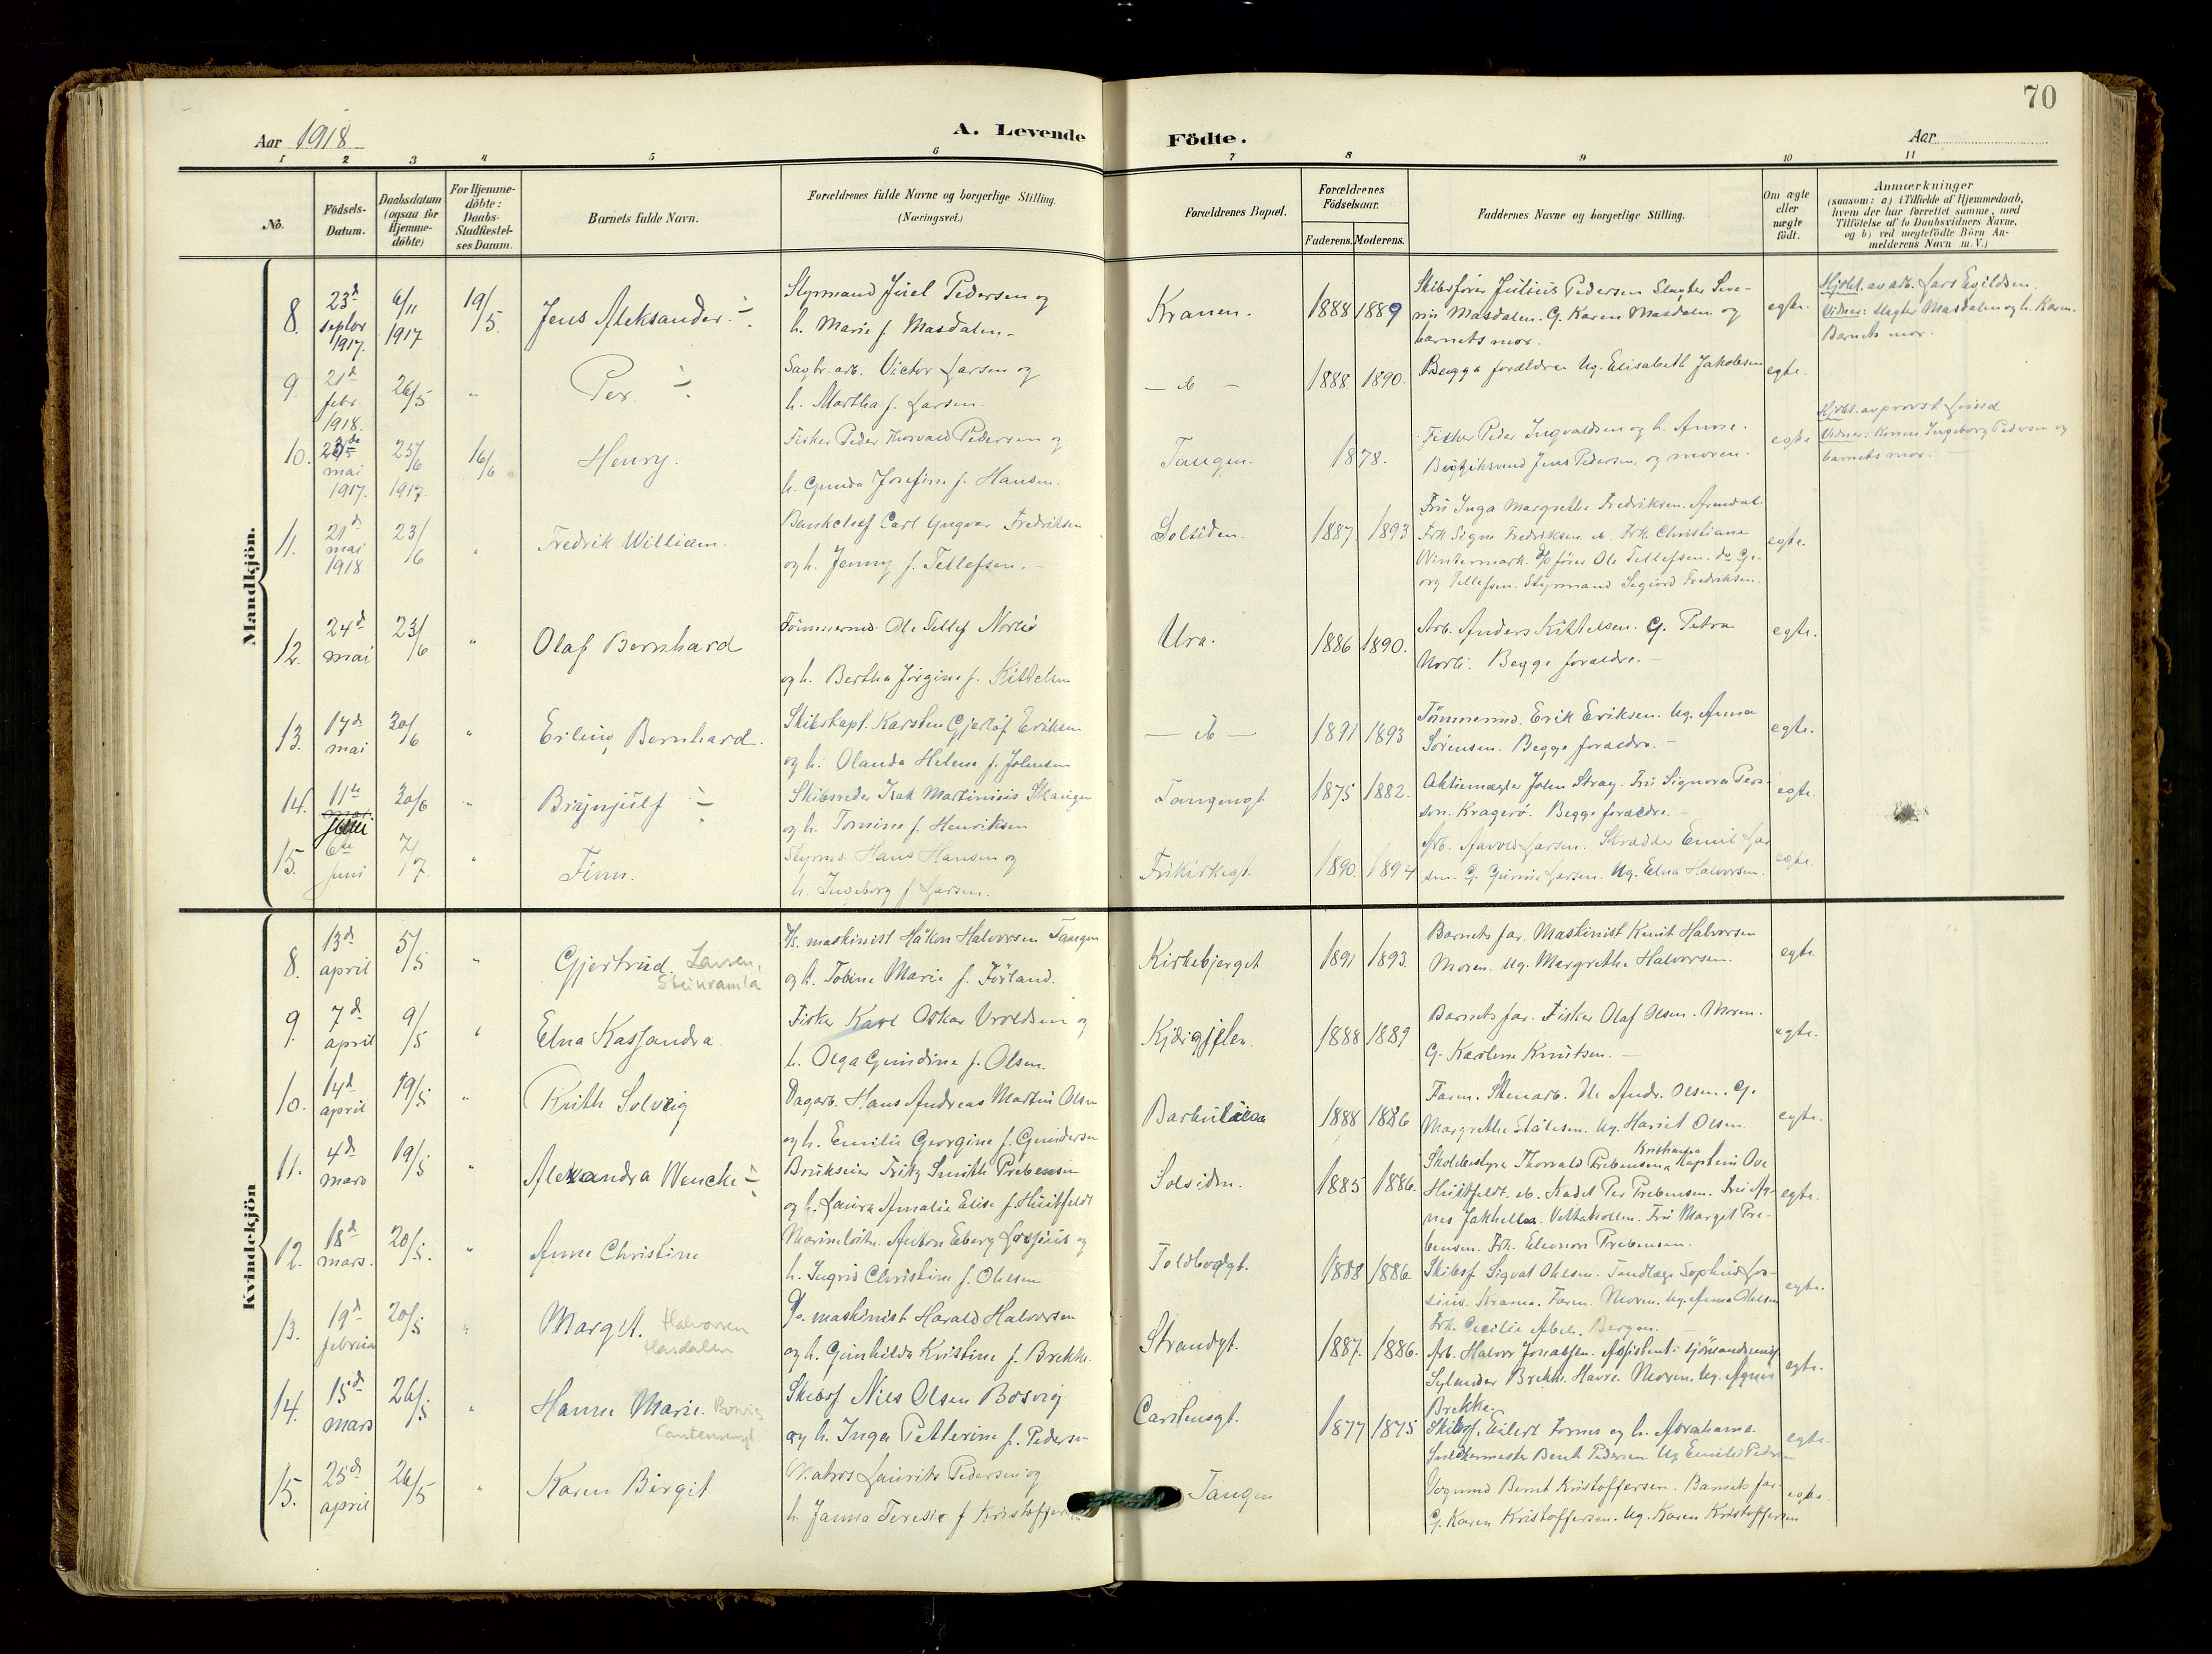 70
Aar 1918
A. Levende Födte.
Aar
1 2 3 4 5 6 7 8 9 10 11
No.
Födsels-Datum.
Daabsdatum (ogsaa for Hjemme-döbte)
For Hjemme-döbte: Daabs-Stadfæstel-ses Datum.
Barnets fulde Navn.
Forældrenes fulde Navne og borgerlige Stilling. (Næringsvei.)
Forældrenes Bopæl.
Forældrenes Födselsaar.
Faderens. Moderens.
Faddernes Navne og borgerlige Stilling.
Om ægte eller uægte födt.
Anmærkninger
(saasom: a) i Tilfælde af Hjemmedaab,
hvem der har forrettet samme, med
Tilföielse af to Daabsvidners Navne.
og b) ved uægtefödte Börn An-
melderens Navn m. V.)
Mandkjön.
8. 23d septbr 1917. 6/11 1917 19/5. Jens Aleksander.
Styrmand Juel Pedersen og
h. Marie f. Masdalen.
Kranen. 1888 1889
Skibsförer Julius Pedersen Slagter Seve-
rin Masdalen. G. Karen Masdalen og
barnets mor.
egte.
Hjdbt. av arb. Lars Egildsen.
Vidner: slagter Masdalen og h. Karen.
Barnets mor.
9. 21d febr. 1918. 26/5 " Per.
Sagbr. arb. Victor Larsen og
h. Martha f. Larsen.
— do — 1888. 1890.
Begge forældre Ug. Elisabeth Jakobsen
egte.
10. mai 1917. 25/6 1917. 16/6 Henry.
Fisker Peder Thorvald Pedersen og
h. Gunda Josefine f. Hansen.
Tangen. 1878.
Fisker Peder Ingvaldsen og h. Anne.
Jens Pedersen, og moren.
egte
Hjdbt. av provst Lund
Vidner: Konen Ingeborg Pedersen og
barnets mor.
11. 21d mai 1918 23/6 " Fredrik William.
Bankchef Carl Yngvar Fredriksen
og h. Jenny f. Tellefsen.
Solsiden. 1887. 1893
Fru Inga Margrethe Fredriksen. Arendal.
Frk Signe Fredriksen do. Frk. Christiane
Wintermark. förer Ole Tellefsen. do Ge-
org Tellefsen. Styrmand Sigurd Fredriksen.
egte.
12. 24d mai 23/6 " Olaf Bernhard
Tömmermd. Ole Tellef Norli
og h. Bertha Jörgine f. Kittelsen
Ura. 1886 1890.
Arb. Anders Kittelsen. G. Petra
Norli. Begge forældre.
egte.
13. 17d mai 30/6 " Erling Bernhard.
Skibskapt. Karsten Gjerlöf Eriksen
og h. Olanda Helene f. Johnsen
— do — 1891 1893
Tömmermd. Erik Eriksen. Ug. Anna
Sörensen. Begge forældre.
egte.
14. 11te juni 30/6 " Brynjulf
Skibsreder Isak Martinius Skaugen
og h. Tomine f. Henriksen
Tangengt. 1875 1882.
Aktiemægler John Stray. Fru Signora Pers-
son. Kragerö. Begge forældre.
egte.
15. 6te juni 7/7. " Finn.
Styrmd. Hans Hansen og
h. Ingeborg f. Larsen.
Frikirkegt. 1890. 1894
Arb. Larsen. Skrædder Emil Lar
sen. G. Larsen. Ug. Elna Halvorsen.
egte.
Kvindekjön
8. 13d april 5/5 " Gjertrud. Larsen, Steinramla
maskinist Håkon Halvorsen Tangen
og h. Tobine Marie f. Förland.
Kirkebjerget 1891 1893.
Barnets far. Maskinist Knut Halvorsen
Moren. Ug. Margrethe Halvorsen.
egte
9. 7d april 9/5 " Elna Kassandra.
Fisker Karl Oskar Vroldsen og
h. Olga Gundine f. Olsen.
1888 1889
Barnets far. Fisker Olaf Olsen. Moren.
G. Karoline Knutsen.
egte.
10. 14d april 19/5 " Ruth Solveig
Dagarb. Hans Andreas Martin Olsen
og h. Emilie Georgine f. Gundersen
1888 1886
Faren. Stenarb. Ole Andr. Olsen. G.
Margrethe Stålesen. Ug. Harriet Olsen.
egte.
11. 4d mars 19/5 " Alexandra Wencke
Brukseier Fritz Smith Prebensen
og h. Laura Amalie Elise f. Huitfeldt
Solsiden. 1885 1886.
Kristiania
Skolebestyrer Thorvald Prebensen Kaptein Ove
Huitfeldt. do. Kadet Per Prebensen. Fru Ag-
nes Jakhelln. Vettakollen. Fru Margit Pre-
bensen. Frk. Eleonore Prebensen.
egte.
12. 18d mars. 20/5. " Anne Christine
Marinelöitn. Anton Eberg Lossius og
h. Ingrid Christine f. Ohlsen
Toldbodgt. 1888 1886
Skibsf. Sigvat Ohlsen. Tandlæge Sophus Los-
sius. Faren. Moren. Ug. Anna Ohlsen
Frk. Cecilie Abel. Bergen.
egte.
13. 19d februar 20/5 " Margit. Halvorsen Hasdalen
maskinist Harald Halvorsen
og h. Gunhilda Kristine f. Brekke.
Strandgt. 1887. 1886.
Arb. Halvor Jonassen. Assistent i
Brekke. Havre. Moren. Ug. Agnes
Brekke.
egte.
14. 15d mars 26/5 " Hanne Marie. Bosvig Carstensengt
Skibsf. Niels Olsen Bosvig
og h. Inga Petterine f. Pedersen
Carstensgt. 1877 1875
Skibsf. Eilert Tornes og h. Abrahama.
Bent Pedersen Ug Emilie Pedersen
egte.
15. 25d april 26/5 " Karen Birgit
Matros Laurits Pedersen og
h. Janna Teresie f Kristoffersen
Tangen
Bernt Kristoffersen. Barnets far
G. Karen Kristoffersen. Ug. Karen Kristoffersen
egte.